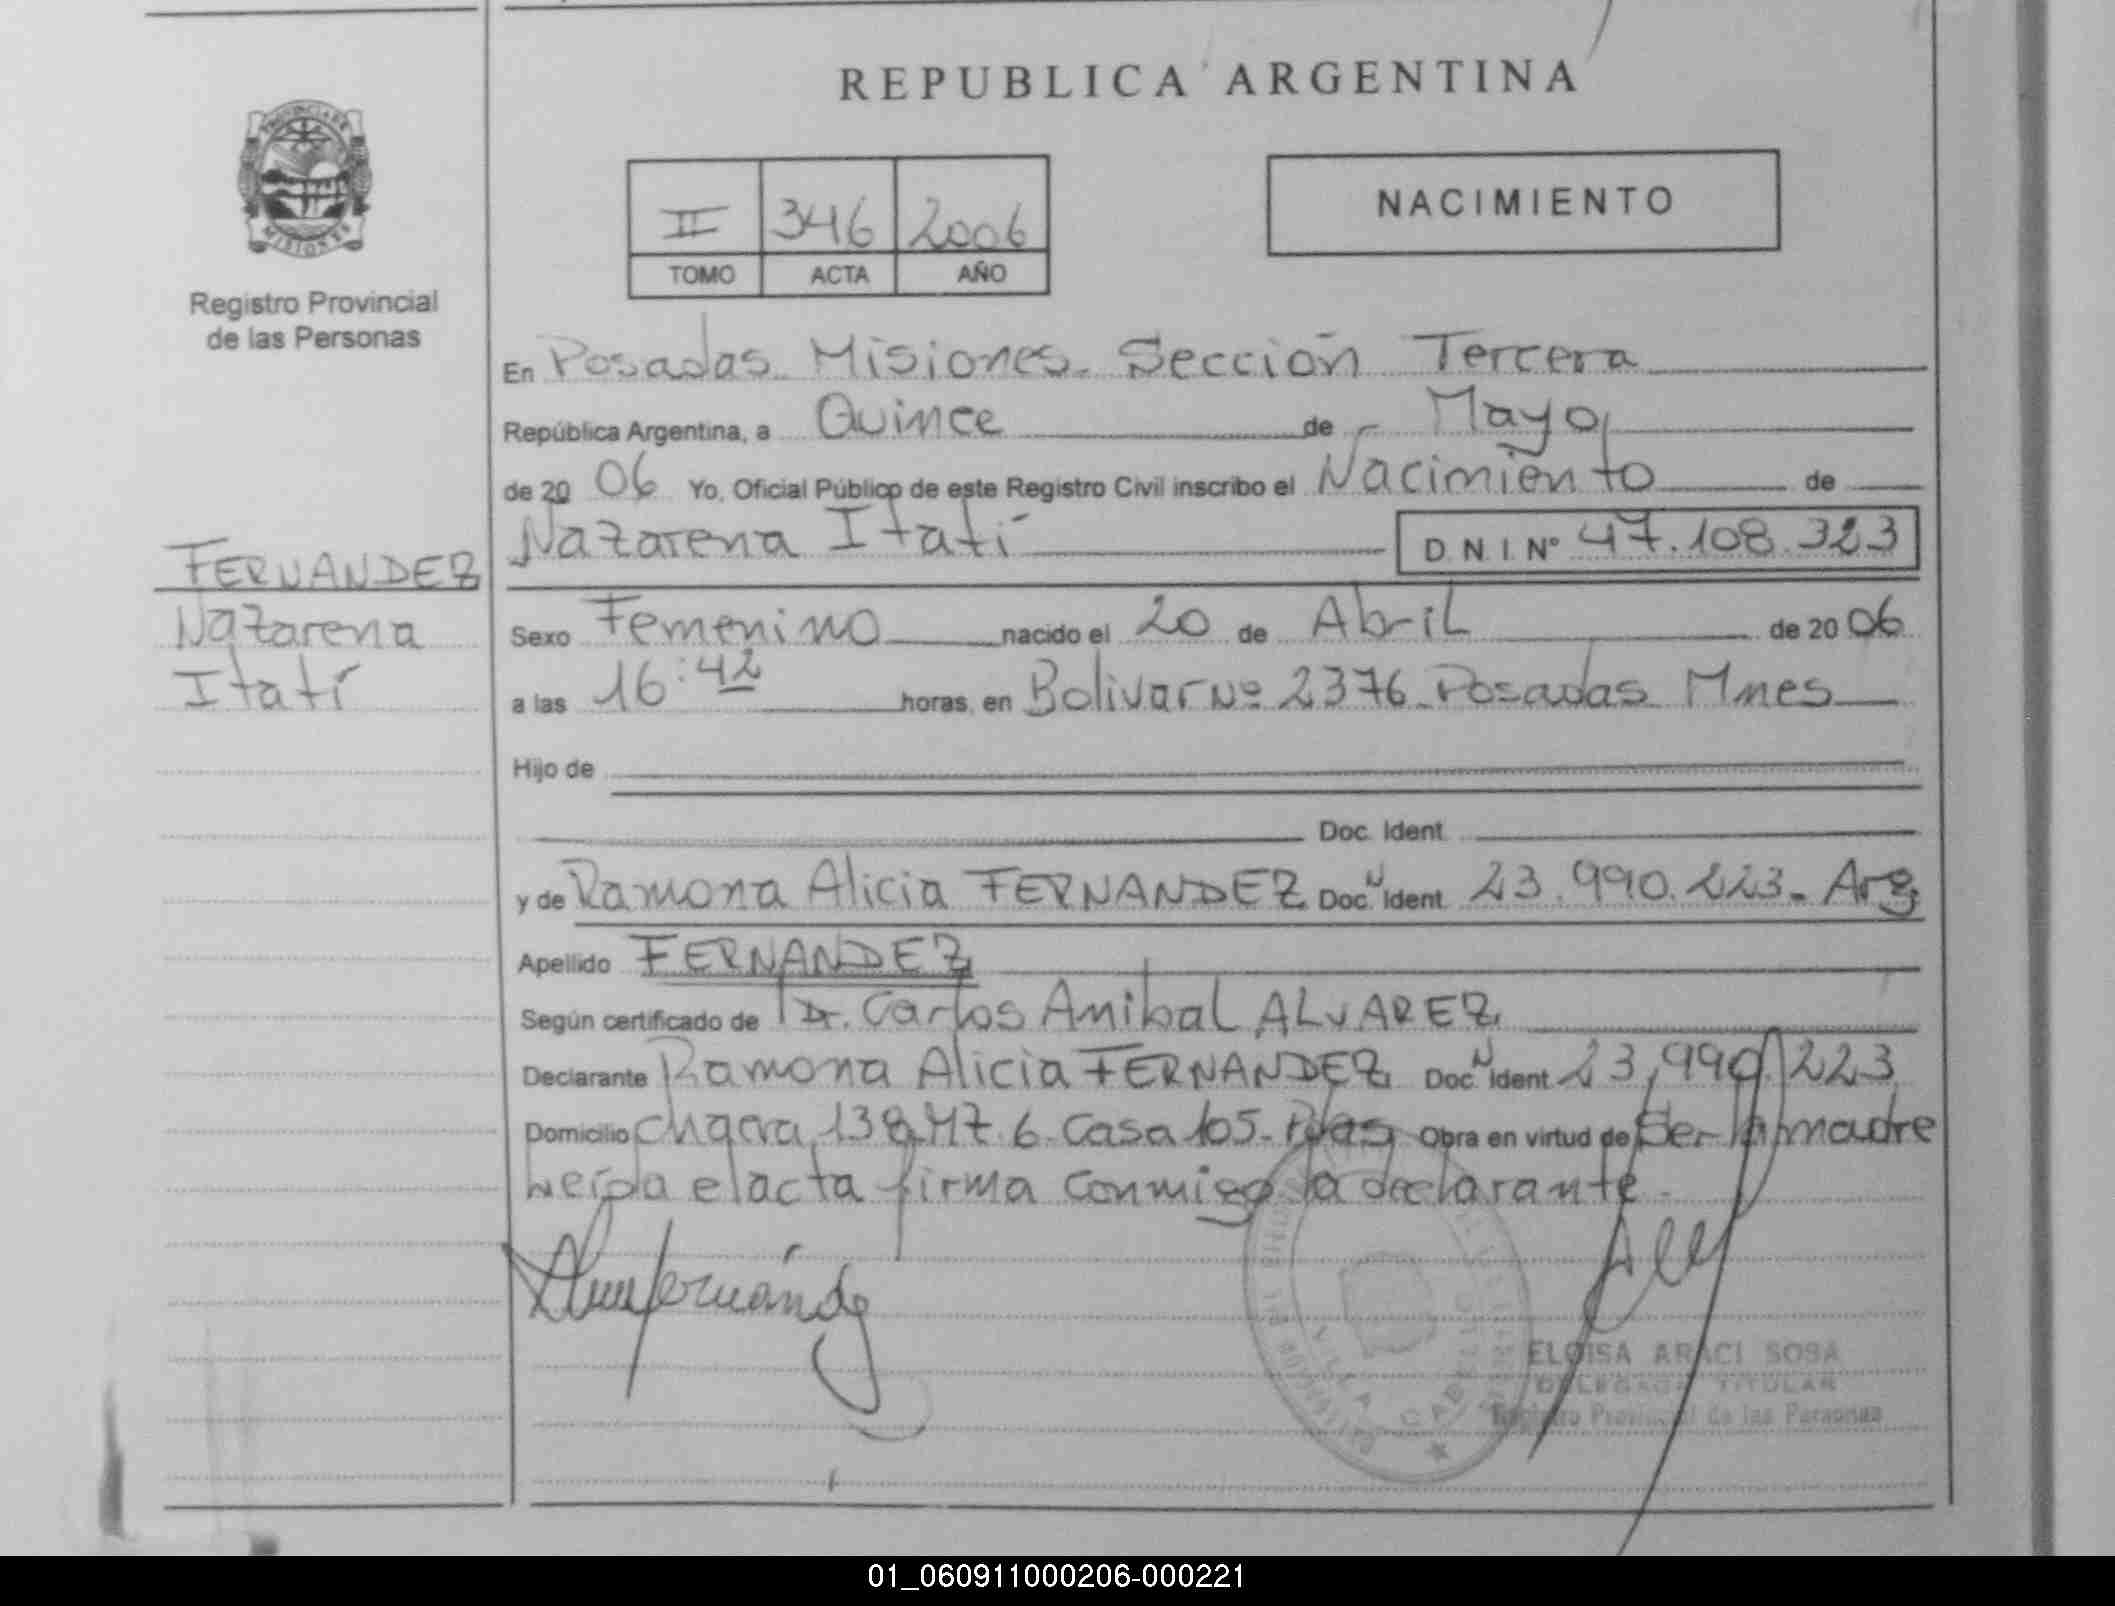 REPUBLICA ARGENTINA
PROVINCIA DE
MISIONES
Registro Provincial
de las Personas
II 346 2006
TOMO ACTA AÑO
NACIMIENTO
En Posadas Misiones. Sección Tercera
República Argentina, a Quince de Mayo
de 20 06 Yo, Oficial Público de este Registro Civil inscribo el Nacimiento de
Nazarena Itatí D.N.I. Nº 47.108.323
FERNANDEZ
Nazarena
Itatí
Sexo Femenino nacido el 20 de Abril de 20 06
a las 16:42 horas, en Bolivar Nº 2376 Posadas Mnes
Hijo de
Doc. Ident.
y de Ramona Alicia FERNANDEZ Doc. Ident. 23.990.223. Arg
Apellido FERNANDEZ
Según certificado de Dr. Carlos Anibal ALVAREZ
Declarante Ramona Alicia FERNANDEZ Doc. Ident. 23,990.223
Domicilio Chacra 138 Mz. 6 Casa 105 - Pdas Obra en virtud de Ser la madre
Leída el acta firma conmigo la declarante.
ELOISA ARACI SOSA
DELEGADA TITULAR
Registro Provincial de las Personas
VILLA CABELLO
01_060911000206-000221